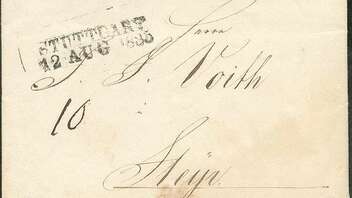 STUTTGART
12 AUG 1835
Herrn
J. J. Voith
10
à
Steÿr.